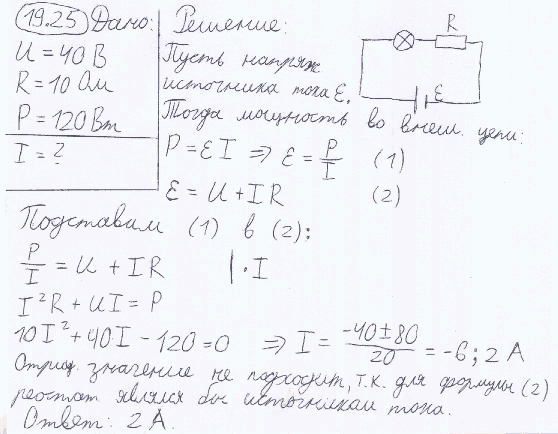 19.25 Дано: Решение:
U = 40 В
R = 10 Ом
P = 120 Вт
I = ?
R
ε
Пусть напряж.
источника тока ε.
Тогда мощность во внеш. цепи:
P = εI ⇒ ε = P/I (1)
ε = U + IR (2)
Подставим (1) в (2):
P/I = U + IR | · I
I²R + UI = P
10I² + 40I - 120 = 0 ⇒ I = (-40 ± 80)/20 = -6; 2 А
Отриц. значение не подходит, т.к. для формулы (2)
реостат являлся бы источником тока.
Ответ: 2 А.